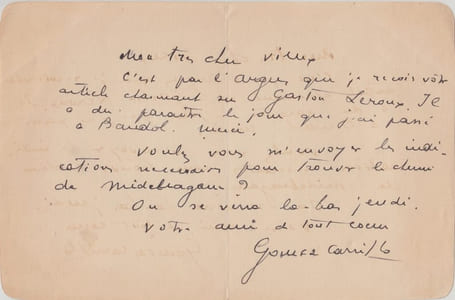 Mon très cher vieux
C'est par l'argus que je reçois votre
article charmant sur Gaston Leroux. Il
a dû paraître le jour que j'ai passé
à Bandol. merci.
Voulez vous m'envoyer les indi-
cations nécessaires pour trouver le chemin
de
On se verra là-bas jeudi.
Votre ami de tout coeur
Gomez Carrillo